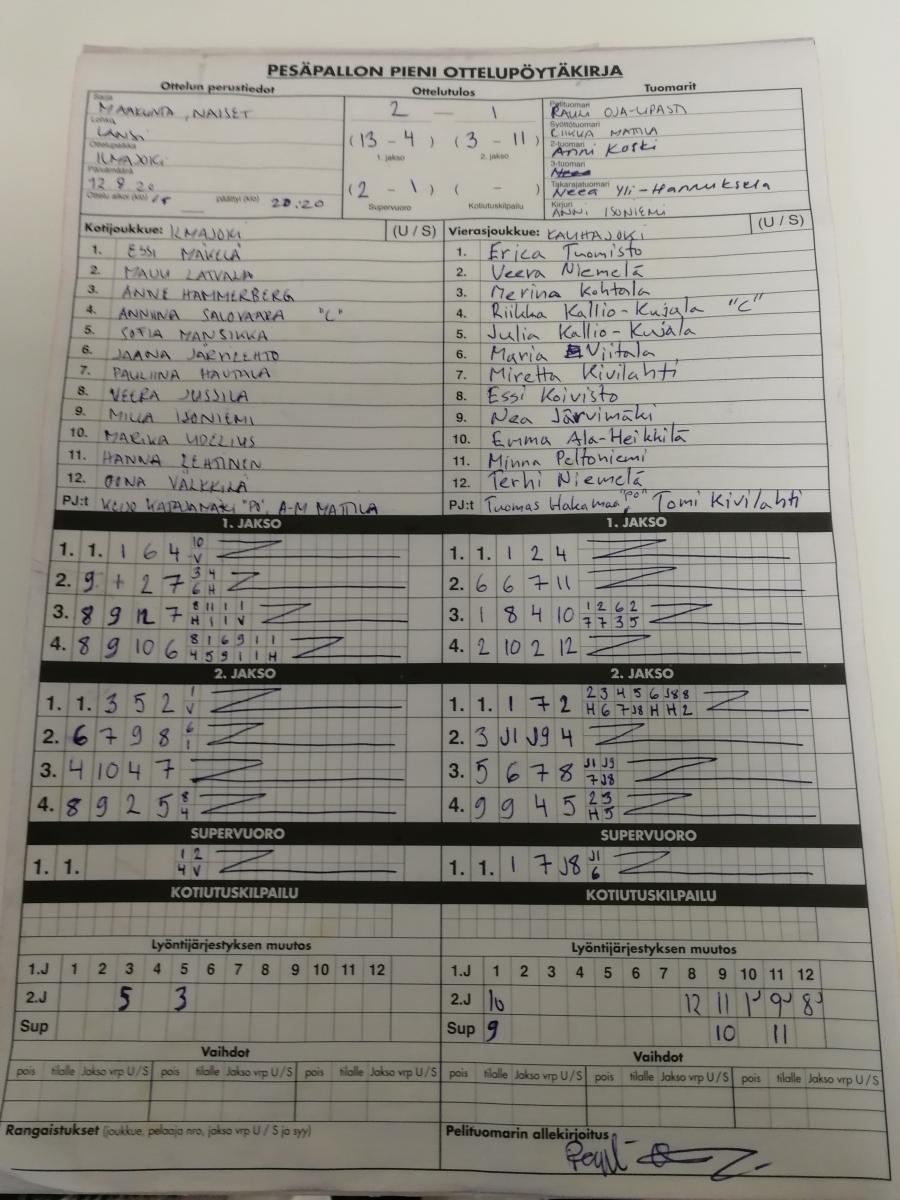 PESÄPALLON PIENI OTTELUPÖYTÄKIRJA
Ottelun perustiedot Ottelutulos Tuomarit
Sarja
MAAKUNTA, NAISET
Lohko
LÄNSI
Ottelupaikka
ILMAJOKI
Päivämäärä
12.8.20
Ottelu alkoi (klo) päättyi (klo) 20:20
2 — 1
(13 - 4) (3 - 11)
1. jakso 2. jakso
(2 - 1) ( - )
Supervuoro Kotiutuskilpailu
Pelituomari
RAULI OJA-LIPASTI
Syöttötuomari
LIIKKA MATTILA
2-tuomari
Anni Koski
3-tuomari
Takarajatuomari
Neea Yli-Hannuksela
Kirjuri
ANNI ISONIEMI
Kotijoukkue: ILMAJOKI (U / S)
1. ESSI MÄKELÄ
2. MAIJU LATVALA
3. ANNE HAMMERBERG
4. ANNIINA SALOVAARA "C"
5. SOFIA MANSIKKA
6. JAANA JÄRVILEHTO
7. PAULIINA HAUTALA
8. VEERA JUSSILA
9. MILLA ISONIEMI
10. MARIKA UDELIUS
11. HANNA LEHTINEN
12. OONA VÄLKKILÄ
PJ:t KEIJO KATAJANMÄKI "PO", A-M MATTILA
Vierasjoukkue: KAUHAJOKI (U / S)
1. Erica Tuomisto
2. Veera Niemelä
3. Merina Kohtala
4. Riikka Kallio-Kujala "C"
5. Julia Kallio-Kujala
6. Maria Viitala
7. Miretta Kivilahti
8. Essi Koivisto
9. Nea Järvimäki
10. Emma Ala-Heikkilä
11. Minna Peltoniemi
12. Terhi Niemelä
PJ:t Tuomas Hakamaa "PO", Tomi Kivilahti
1. JAKSO
1. 1. 1 6 4 10 V
2. 9 + 2 7 3 4 6 H
3. 8 9 12 7 8 11 1 1 H 1 1 V
4. 8 9 10 6 8 1 6 9 1 1 4 5 9 1 1 H
1. JAKSO
1. 1. 1 2 4
2. 6 6 7 11
3. 1 8 4 10 1 2 6 2 7 7 3 5
4. 2 10 2 12
2. JAKSO
1. 1. 3 5 2 1 V
2. 6 7 9 8 6 1
3. 4 10 4 7
4. 8 9 2 5 8 4
2. JAKSO
1. 1. 1 7 2 2 3 4 5 6 J8 8 H 6 7 J8 H H 2
2. 3 J1 J9 4
3. 5 6 7 8 J1 J9 7 J8
4. 9 9 4 5 2 3 H 5
SUPERVUORO
1. 1. 1 2 4 V
SUPERVUORO
1. 1. 1 7 J8 J1 6
KOTIUTUSKILPAILU
KOTIUTUSKILPAILU
Lyöntijärjestyksen muutos
1.J 1 2 3 4 5 6 7 8 9 10 11 12
2.J 5 3
Sup
Lyöntijärjestyksen muutos
1.J 1 2 3 4 5 6 7 8 9 10 11 12
2.J 10 12 11 1J 9J 8J
Sup 9 10 11
Vaihdot
pois tilalle Jakso vrp U / S pois tilalle Jakso vrp U / S pois tilalle Jakso vrp U / S
Vaihdot
pois tilalle Jakso vrp U / S pois tilalle Jakso vrp U / S pois tilalle Jakso vrp U / S
Rangaistukset (joukkue, pelaaja nro, jakso vrp U / S ja syy)
Pelituomarin allekirjoitus